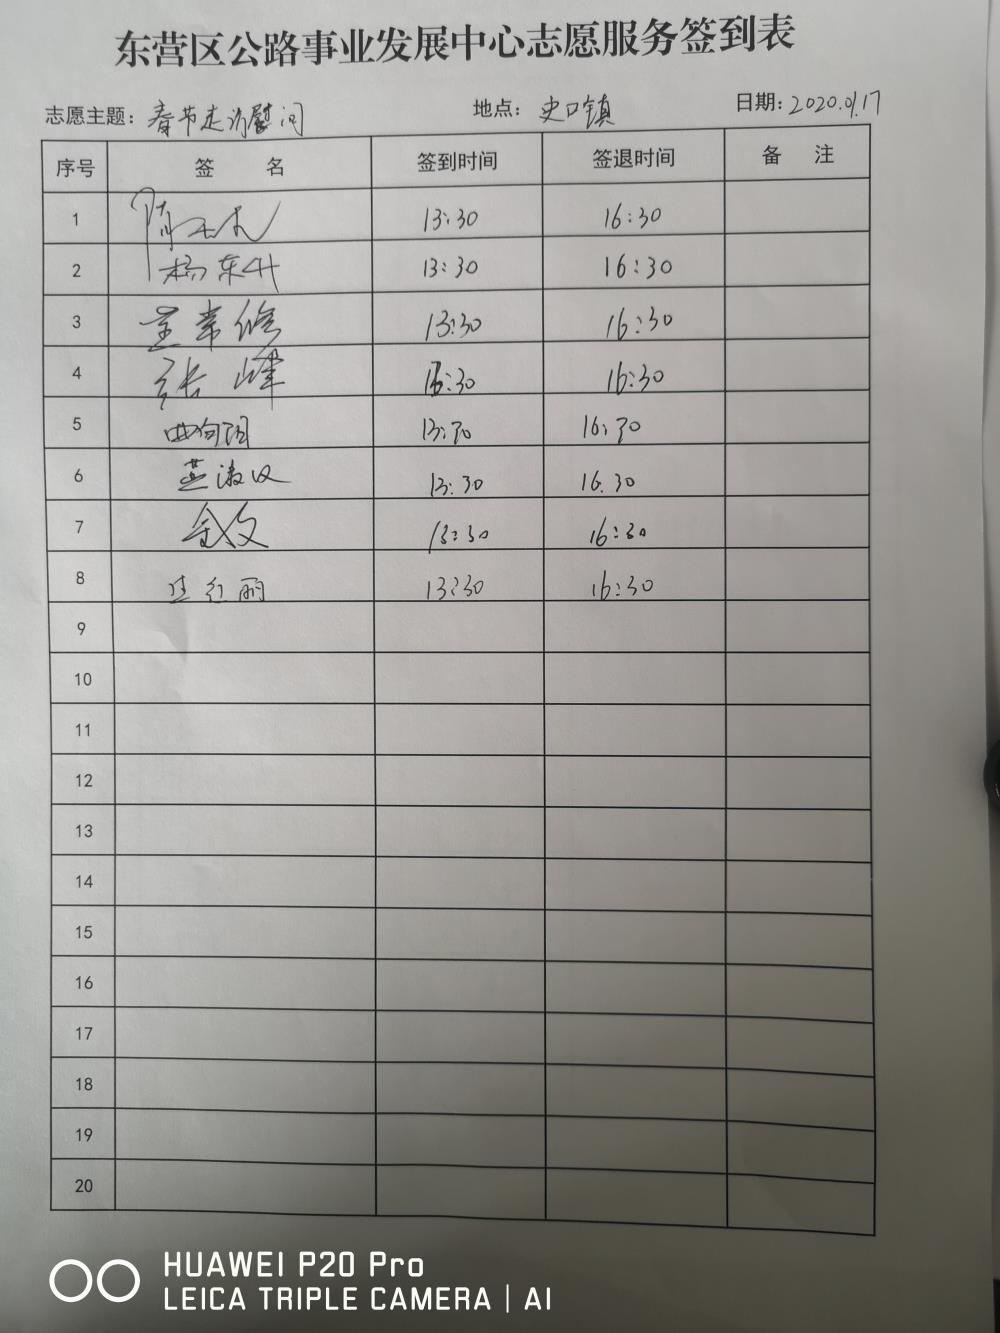 东营区公路事业发展中心志愿服务签到表
志愿主题：春节走访慰问 地点：史口镇 日期：2020.01.17
序号 签 名 签到时间 签退时间 备 注
1 13:30 16:30
2 杨东升 13:30 16:30
3 13:30 16:30
4 张峰 13:30 16:30
5 曲向阳 13:30 16:30
6 13:30 16.30
7 13:30 16:30
8 13:30 16:30
9
10
11
12
13
14
15
16
17
18
19
20
HUAWEI P20 Pro
LEICA TRIPLE CAMERA | AI